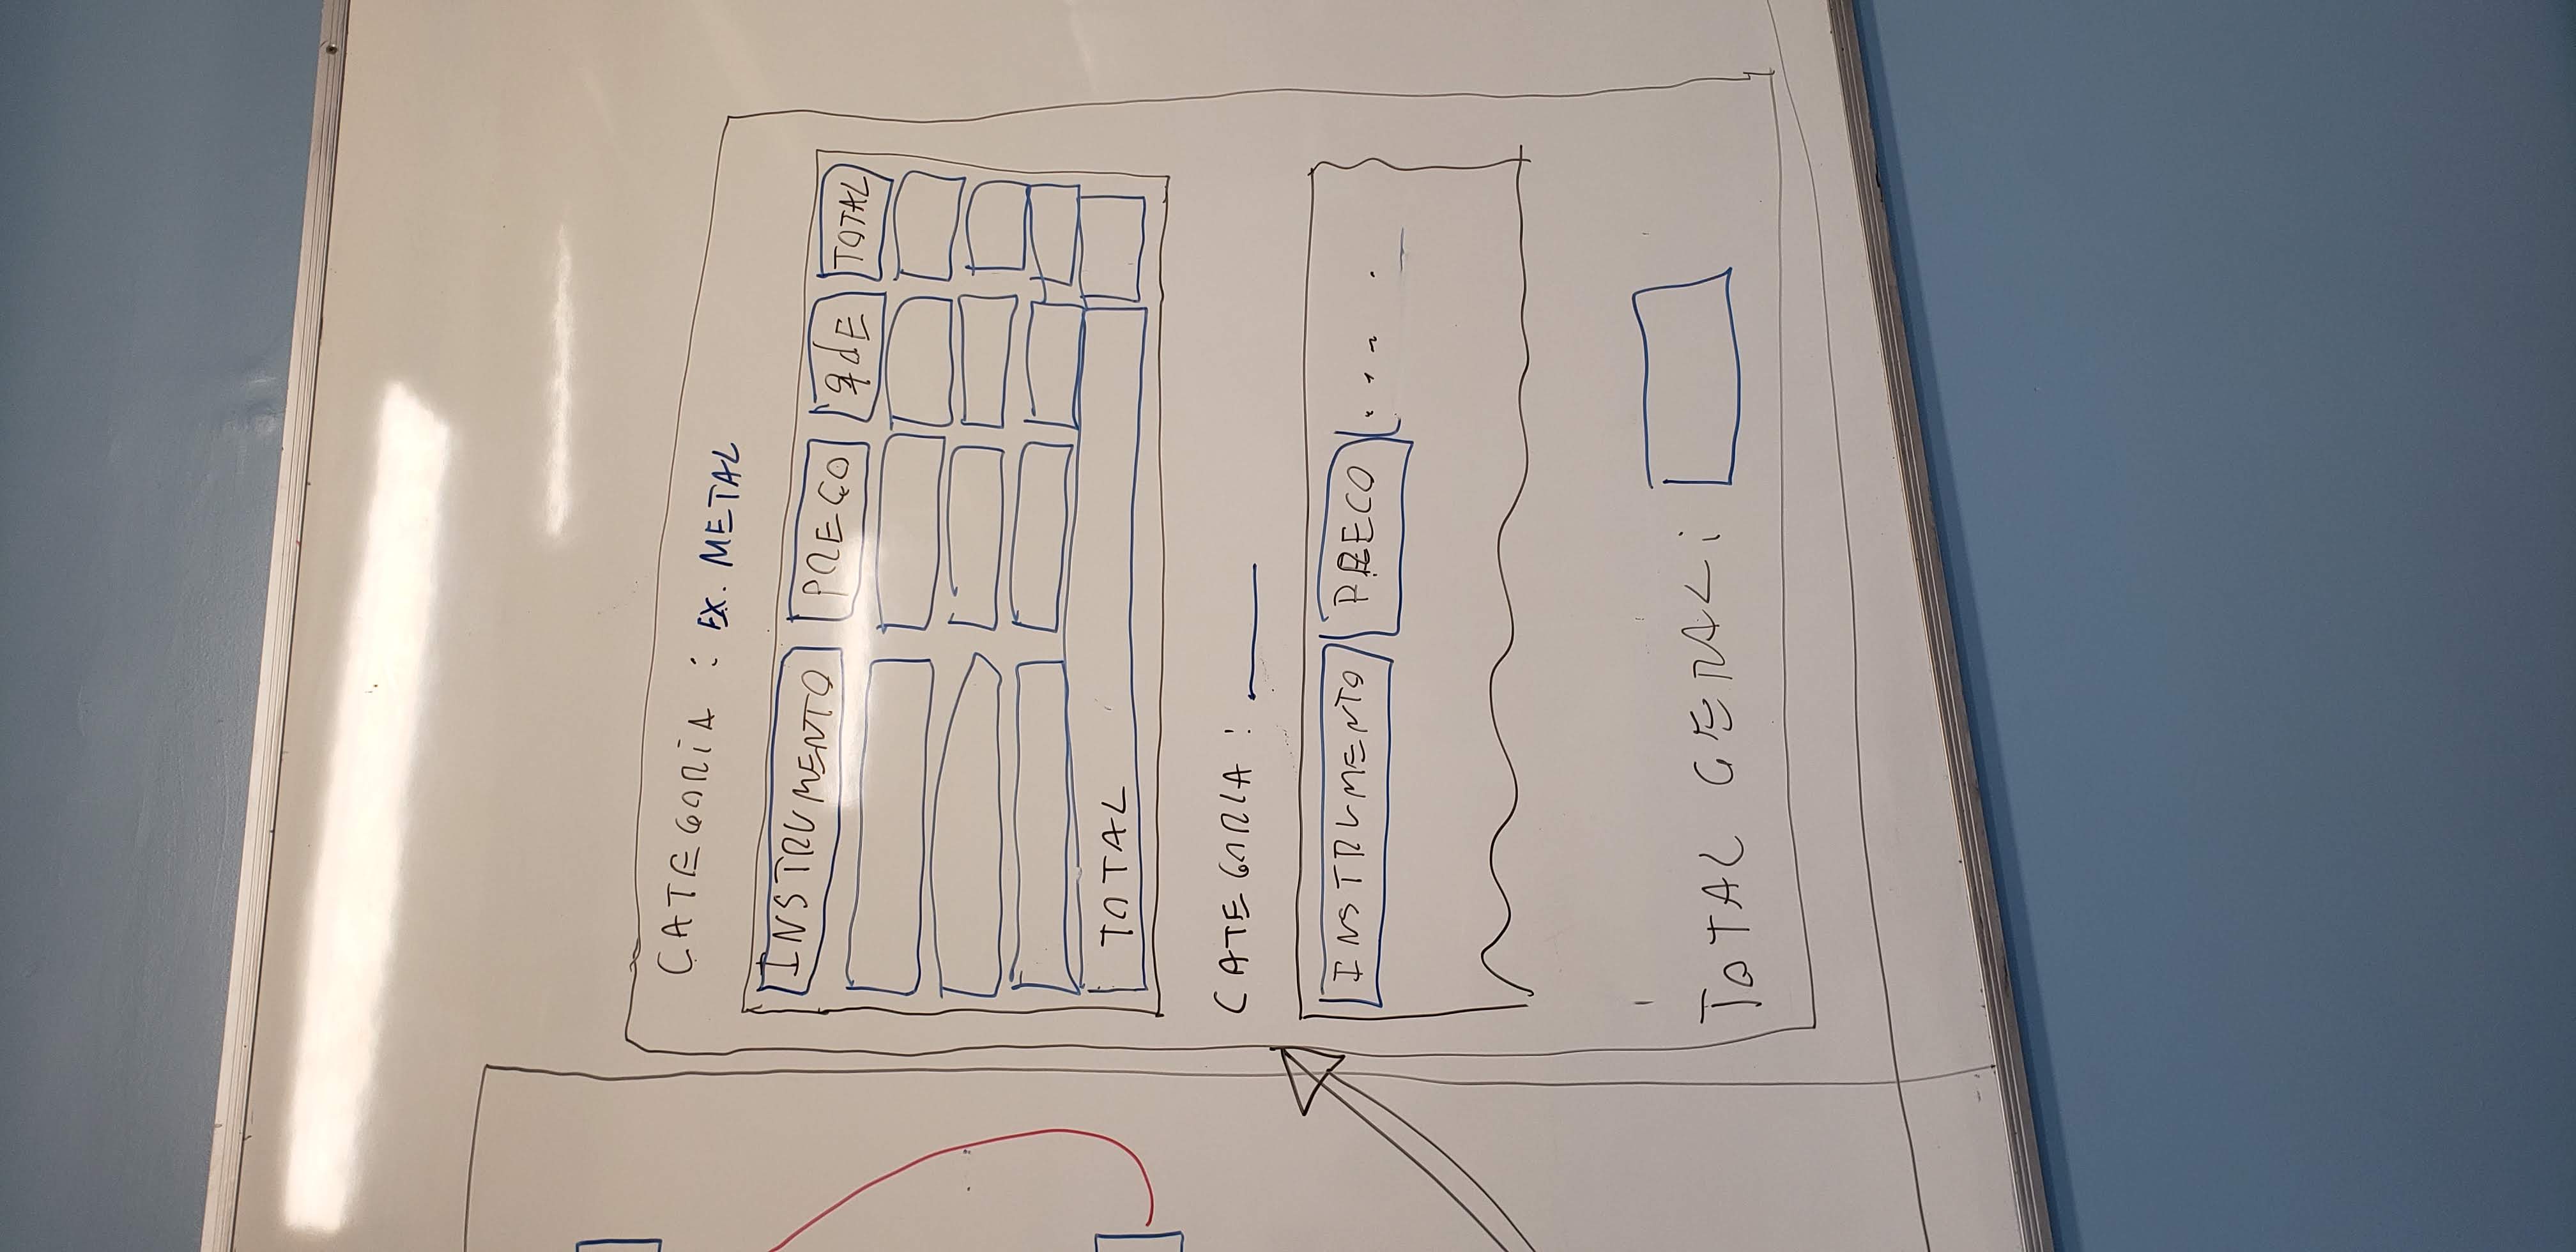 CATEGORIA : EX. METAL
INSTRUMENTO PREÇO qdE TOTAL
TOTAL
CATEGORIA : ____
INSTRUMENTO PRECO . . . .
TOTAL GERAL: